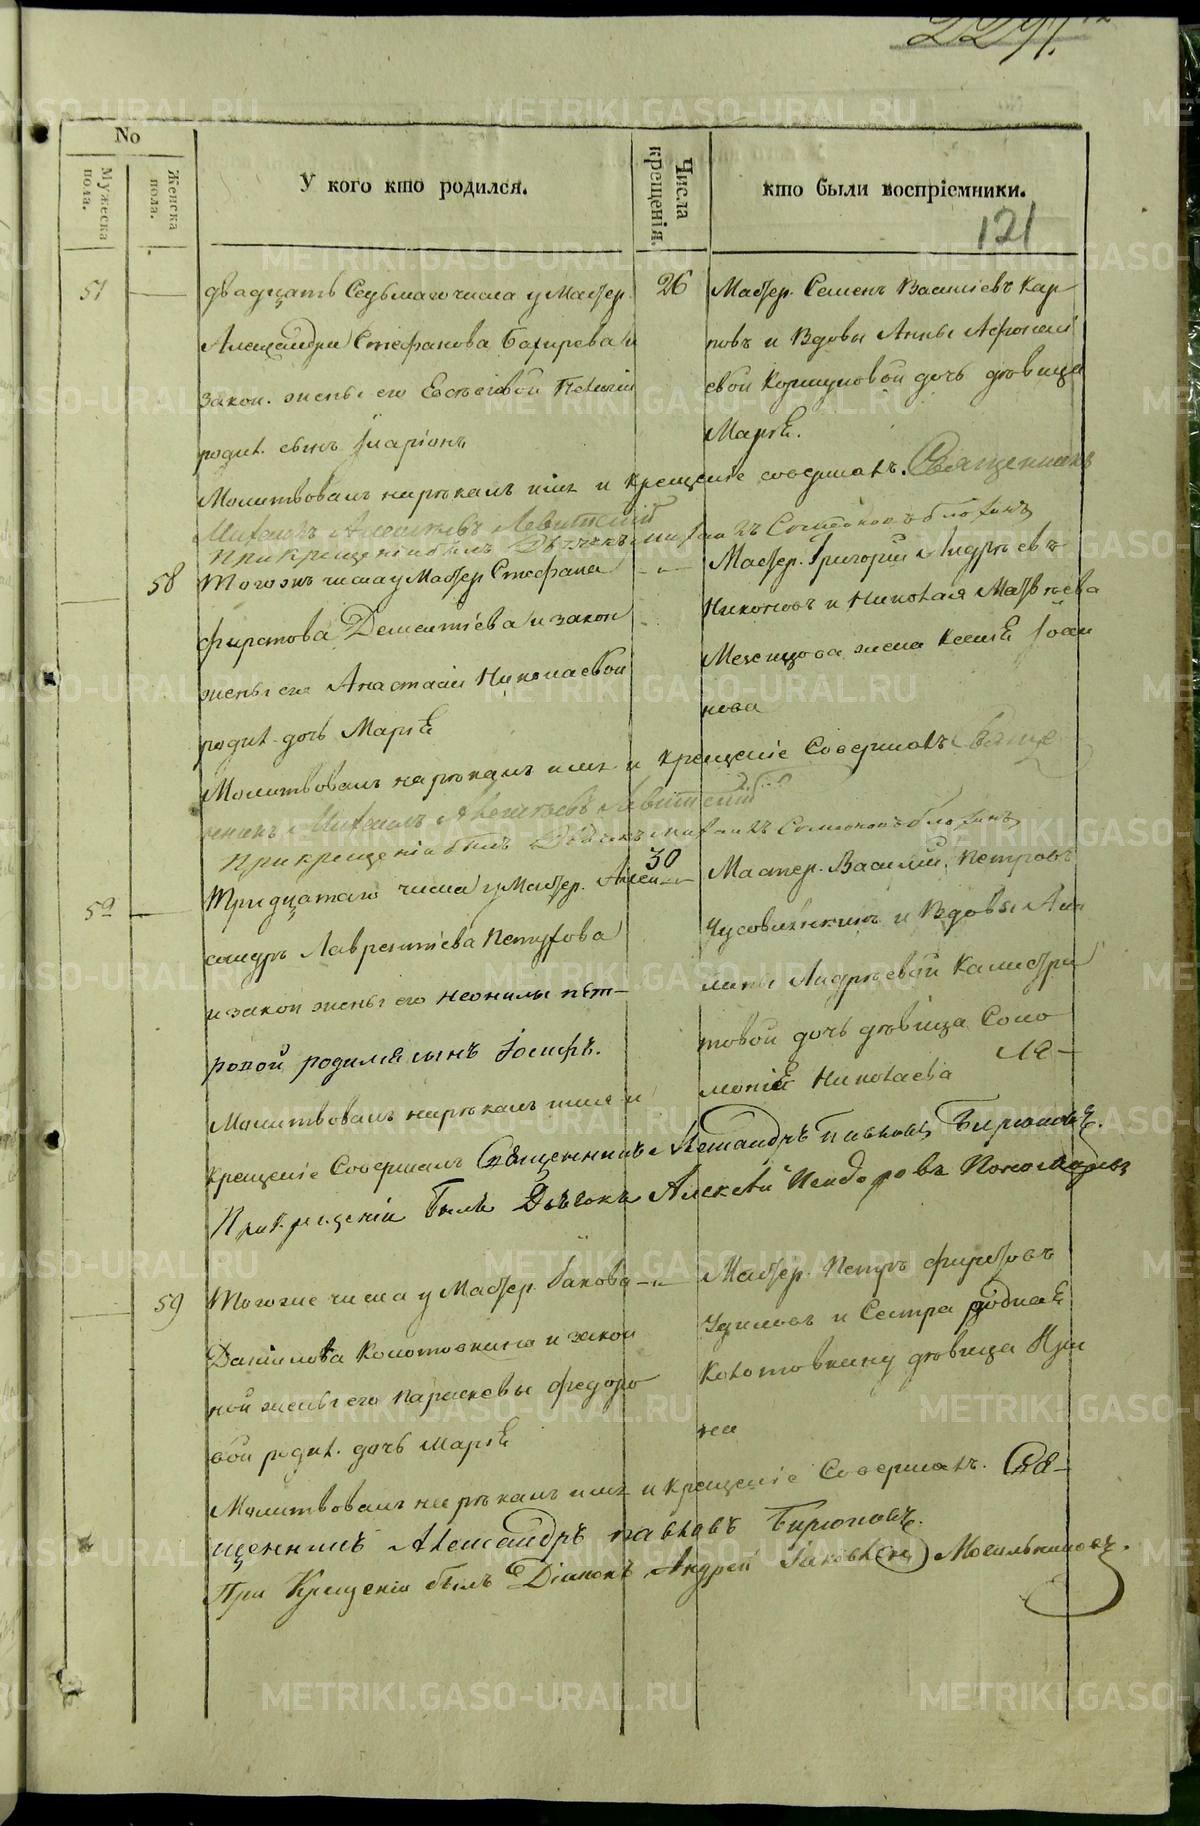 No
Мужеска пола.
Женска пола.
У кого кто родился.
Числа крещенія.
кто были воспріемники.
121
51
26
двадцать Седьмаго числа у Мастер.
Александра Стефанова Бахирева и
закон. жены его
родил. сынъ Иларіонъ
Мастер. Семенъ Васильевъ Кар
повъ и Вдовы Анны Афонась
евой Коршуновой дочь девица
Марія.
Молитвовалъ нарекалъ имя и крещеніе совершалъ. Священникъ
Михаилъ Алексѣевъ Левитскій
При крещеніи былъ Дьячекъ
58
Тогожъ числа у Мастер Стефана
Фирстова Дементіева и закон
жены его Анастасіи Николаевой
родил. дочь Марія
Мастер. Григорій Андреевъ
Никоновъ и Николая Матвеева
жена Ксенія Іоан
нова
Молитвовалъ нарекалъ имя и крещеніе Совершалъ Свяще
нникъ Михаилъ Алексѣевъ Левитскій
При крещеніи былъ Дьячекъ
52
30
Тридцатаго числа у Мастер. Алек
сандра Лаврентіева Петухова
и закон жены его неонилы пет-
ровой родился сынъ Іосифъ.
Мастер. Василій Петровъ
Чусовлянкинъ и Вдовы
Андреевой Калистра
товой дочь девица Соло
монія Николаева
Молитвовалъ нарекалъ имя и
крещеніе Совершалъ Священникъ Александръ Павловъ Бирюковъ.
При крещеніи былъ Дьячокъ Алексѣй Пономаревъ
59
Тогоже числа у Мастер. Іакова
Данилова Колотовкина и закон
ной жены его Парасковьи федоро
вой родил. дочь Марія
Мастер. Петръ фирстовъ
и Сестра родная
Колотовкину девица Ири
на
Молитвовалъ нарекалъ имя и крещеніе Совершалъ. Свя-
щенникъ Александръ павловъ Бирюковъ.
При Крещеніи былъ Діаконъ Андрей Іаковлевъ Могильниковъ.
METRIKI.GASO-URAL.RU